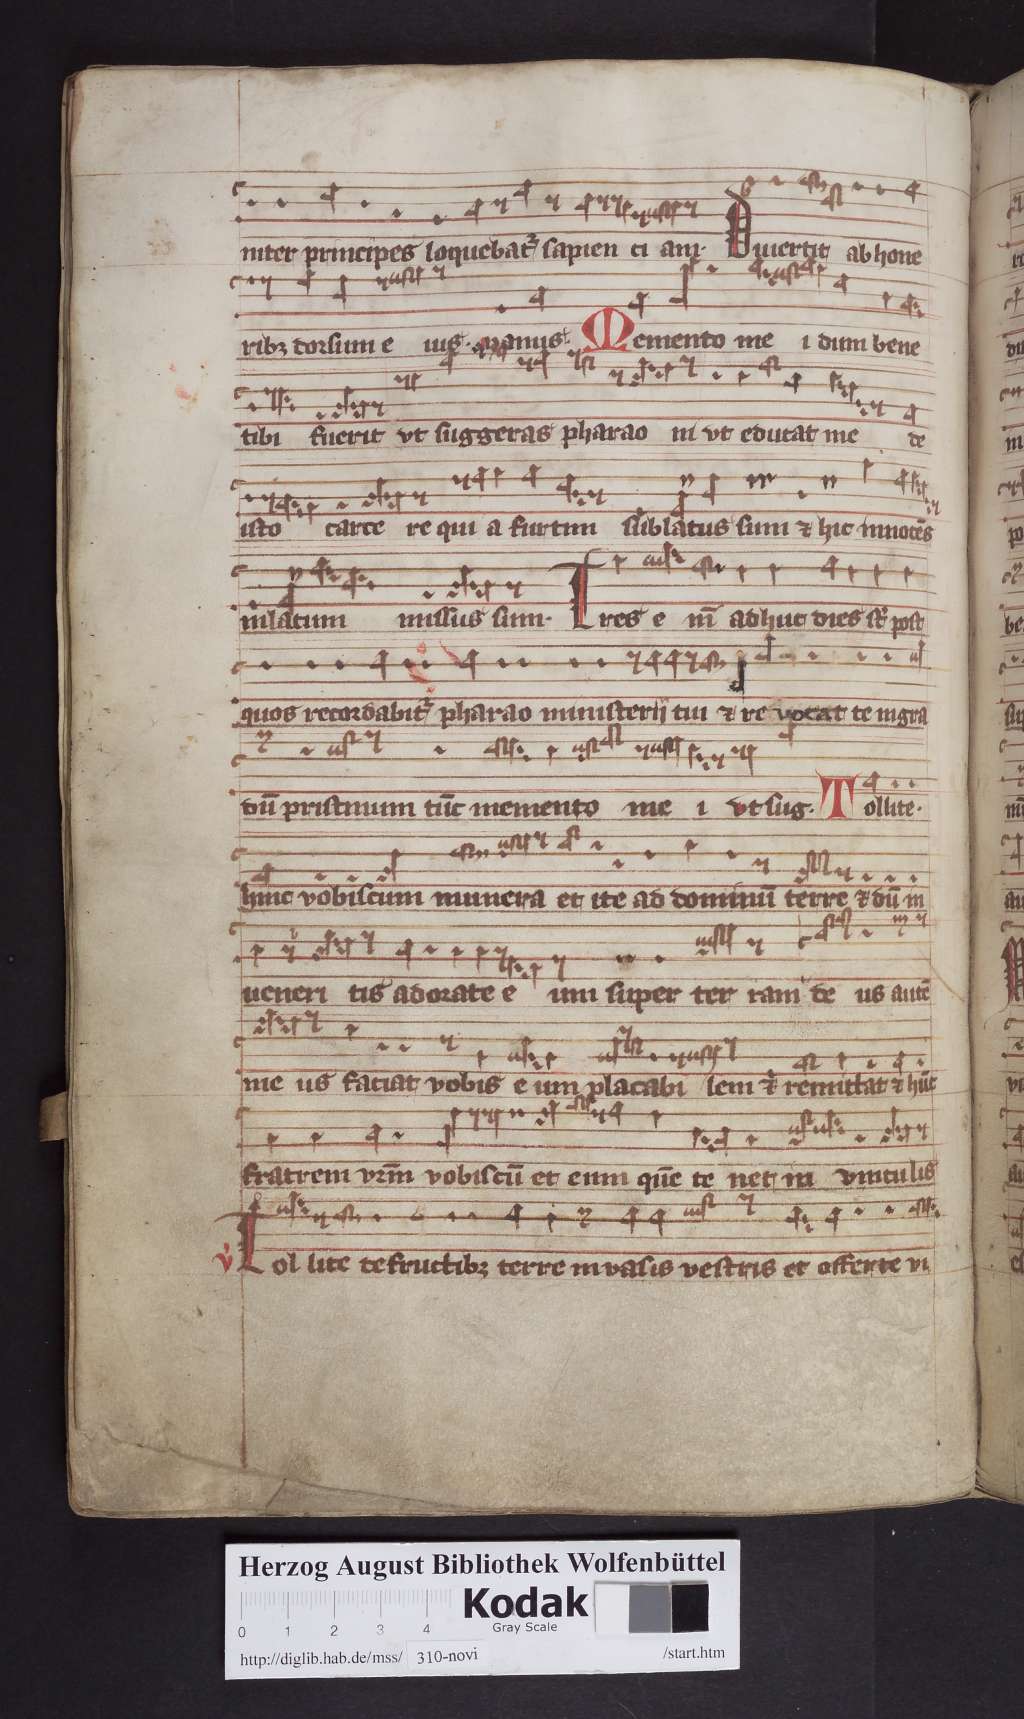 niter principes loquebat᷑ sapien ci am· Diuertit ab hone
ribꝫ dorsum e ius· manus· Memento me i dum bene
tibi fuerit vt suggeras pharao ni vt educat me de
isto carce re qui a furtim sublatus sum ⁊ hic innocēs
in lacum missus sum· Tres e nī adhuc dies st᷑ post
quos recordabit᷑ pharao ministerij tui ⁊ re vocat te in gra
dū pristinum tūc memento me i vt sug· Tollite·
hinc vobiscum munera et ite ad dominū terre ⁊ dū in
ueneri tis adorate e um super ter ram de us autē
me us faciat vobis e um placabi lem ⁊ remittat ⁊ hūc
fratrem vr̄m vobiscū et eum quē te net in vinculis
v̓ Tol lite de fructibꝫ terre in vasis vestris et offerte vi
Herzog August Bibliothek Wolfenbüttel
0 1 2 3 4
Kodak
Gray Scale
http://diglib.hab.de/mss/ 310-novi /start.htm